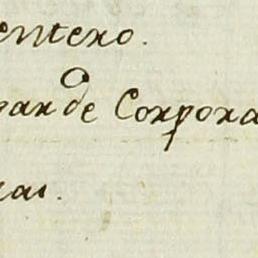 entero.
par de Corpora
rai.